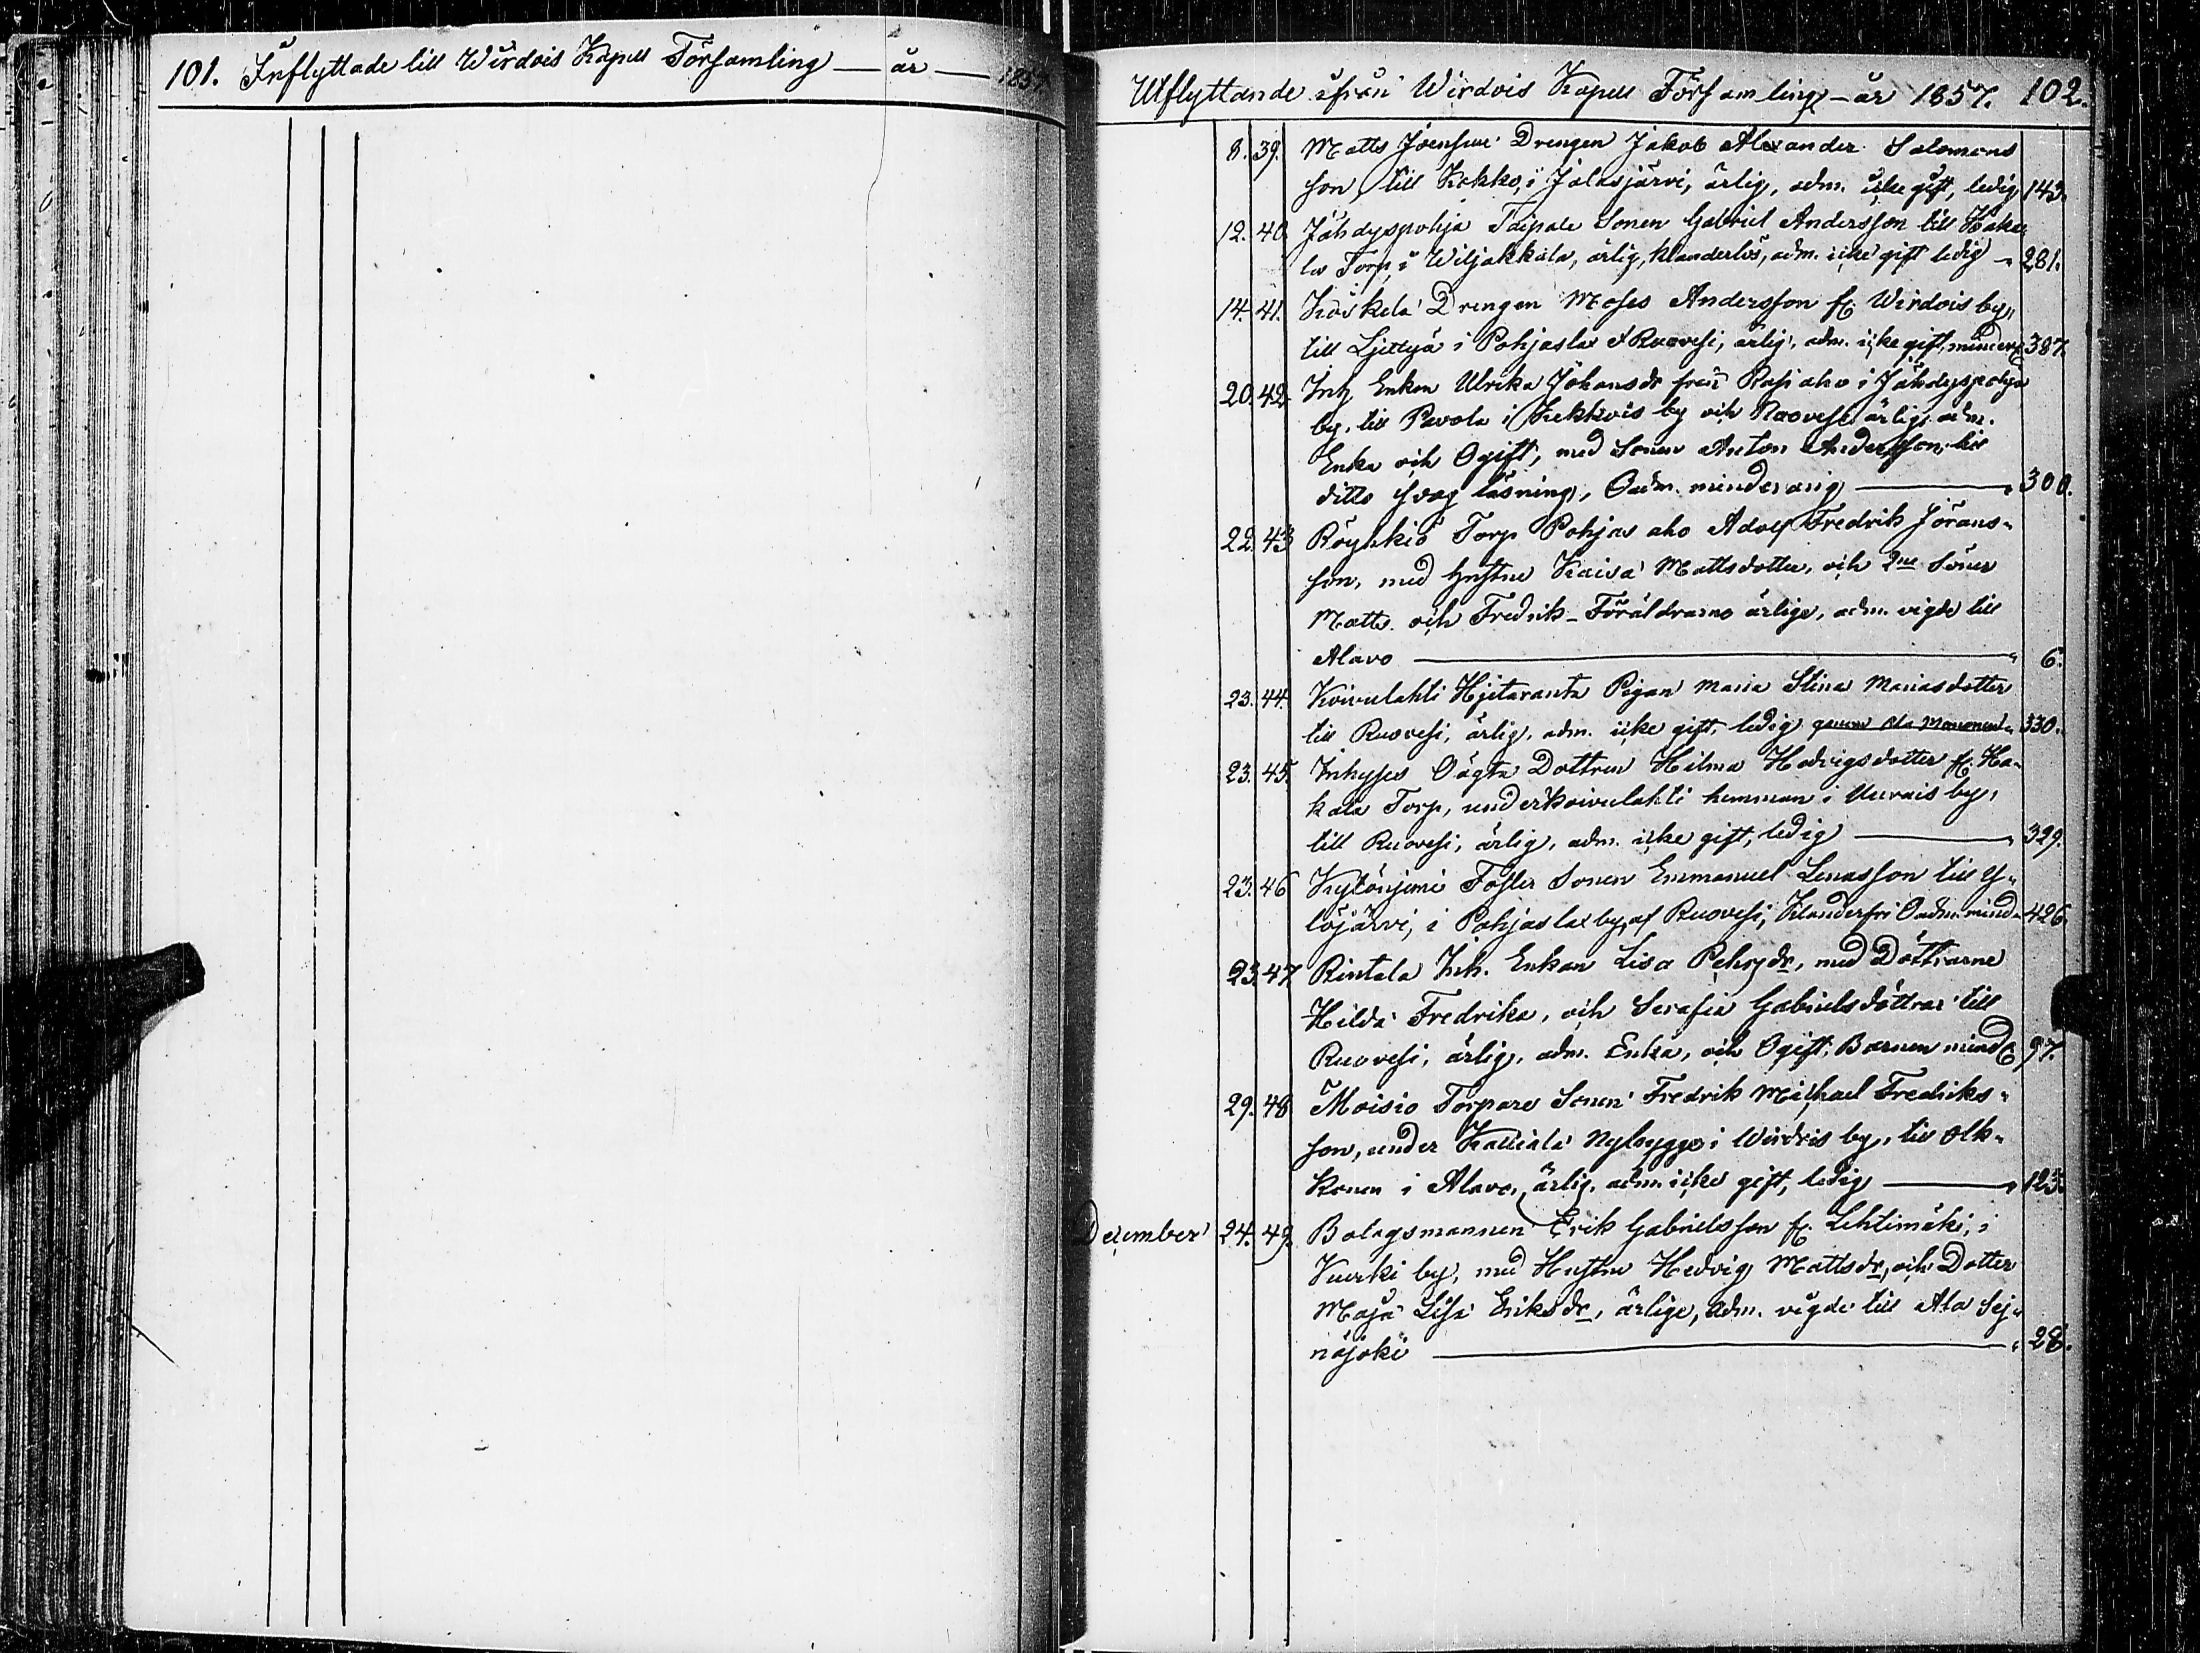 101. Inflyttade till Wirdois Kapell Församling — år — 1857.
Utflyttande ifrån Wirdois Kapell Församling — år 1857. 102.
8. 39. Matts Joensuu Drengen Jakob Alexander Salomons
son, till Kokko, i Jalasjärvi, ärlig, adm. icke gift, ledig 143.
12. 40. Jähdyspohja Taipale Sonen Gabriel Andersson till Haka
la Torp, i Wiljakkala, ärlig, klanderlös, adm. icke gift ledig 281.
14. 41. Koskela Drengen Moses Andersson fr. Wirdois by,
till Ljettyä i Pohjaslax & Ruovesi, ärlig, adm. icke gift, minderå 387.
20. 42. Inh. Enkan Ulrika Johansdr från Rasiaho i Jähdyspohja
by, till Pavola i Kekkois by och Ruovesi ärlig, adm.
Enka och Ogift, med Sonen Anton Andersson, till
ditto svag läsning, Oadm. minderårig — 300.
22. 43 Röyhkiö Torp Pohjas aho Adolf Fredrik Jörans-
son, med hustru Kaisa Mattsdotter, och 2ne Söner
Matts och Fredrik — Föräldrarne ärlige, adm. vigde till
Alavo — 6.
23. 44. Koivulahti Hjetaranta Pigan Maria Stina Mariasdotter
till Ruovesi, ärlig, adm. icke gift, ledig 330.
23. 45. Inhyses Oägta Dottren Hilma Hedvigsdotter fr. Ha-
kala Torp, under Koivulahti hemman i Uurais by,
till Ruovesi, ärlig, adm. icke gift, ledig — 329.
23. 46 Kylönjemi Foster Sonen Emmanuel Lenasson till Y-
löjärvi, i Pohjaslax by, af Ruovesi, Klanderfri Oadm. mind 426.
23. 47 Rintala Inh. Enkan Lisa Pehrsdr, med Döttrarne
Hilda Fredrika, och Serafia Gabrielsdöttrar till
Ruovesi, ärlig, adm. Enka, och Ogift, Barnen mind 97.
29. 48 Moisio Torpare Sonen Fredrik Michael Fredriks-
son, under Kattiala Nybygge i Wirdois by, till Olk-
konen i Alavo, ärlig, adm. icke gift, ledig — 123.
December 24. 49. Bolagsmannen Erik Gabrielsson fr. Lehtimäki, i
Kuerki by, med Hustru Hedvig Mattsdr, och Dotter
Maja Lisa Eriksdr, ärlige, Adm. vigde till Ala Sej-
näjoki — 28.